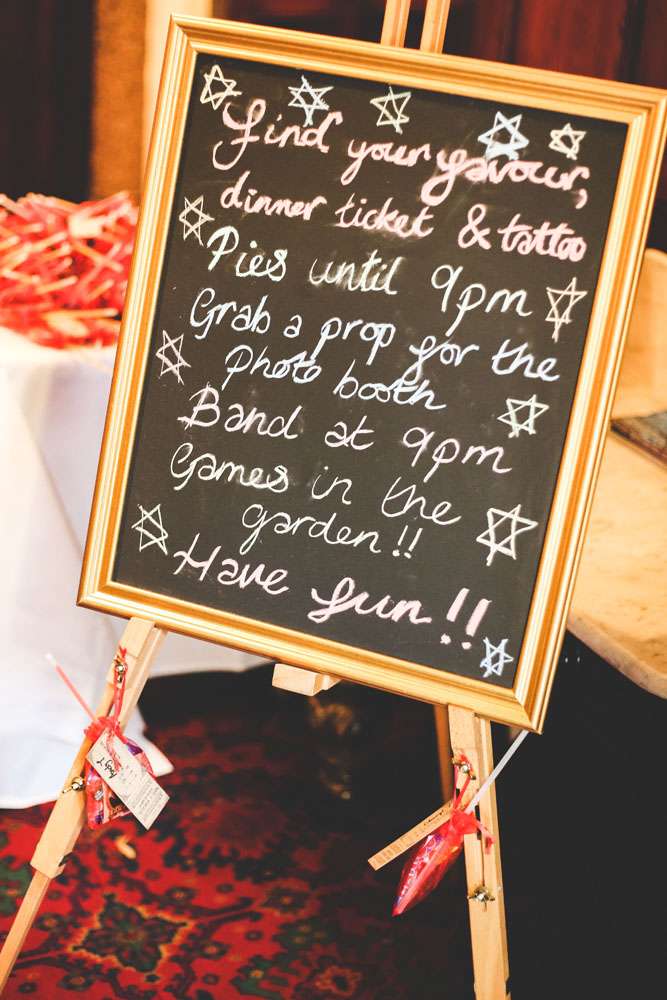 find your favour,
dinner ticket & tattoo
Pies until 9pm
Grab a prop for the
Photo booth
Band at 9pm
Games in the
garden!!
Have fun!!